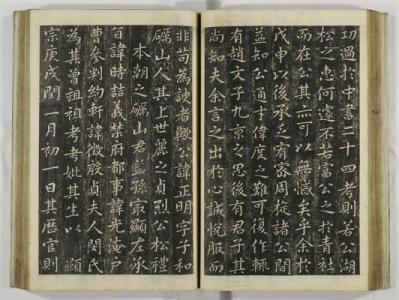 功過於中書二十四考則若公湖
松之惠何遽不若富公之於青社
而在公其亦可以無憾矣乎余於
戊申以後承乏宥密周旋諸公間
益知公通才偉度之難可復作輒
有趙文子九京之思後有君子其
尚知夫余言之出於心誠悅服而
非苟為諛者歟公諱正明字子和
礪山人其上世麗之貞烈公松禮
本朝之礪山君益孫最顯左承
旨諱時喆義禁府都事諱光淹戶
曹參判約軒諱徵殷貞夫人閔氏
為其曾祖祖考考妣其生以 顯
宗庚戌閏二月初一日其歷官則